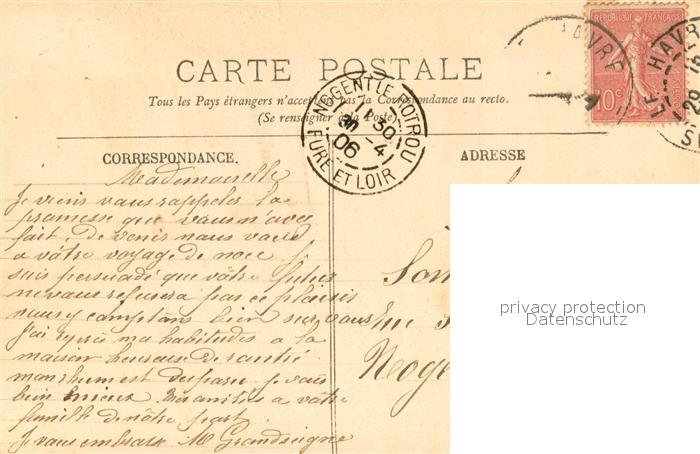 CARTE POSTALE
Tous les Pays étrangers n'acceptent pas la Correspondance au recto.
(Se renseigner à la Poste)
REPUBLIQUE FRANÇAISE
10c
LE HAVRE
NOGENT LE ROTROU
11 30
30 -4
06
EURE ET LOIR
CORRESPONDANCE.
ADRESSE
Mademoiselle
Je viens vous rappeler la
promesse que vous m'avez
fait, de venir nous voir
a vôtre voyage de noce je
suis persuadé que vôtre futur
ne vous refusera pas ce plaisir
nous y comptons bien sur vous
J'ai repris ma habitudes a la
maison heureuse de santé
mon rhum est disparu je vais
bien mieux Mes amitiés a votre
famille de nôtre part
Je vous embrasse M Grandsigne
Noge
privacy protection
Datenschutz